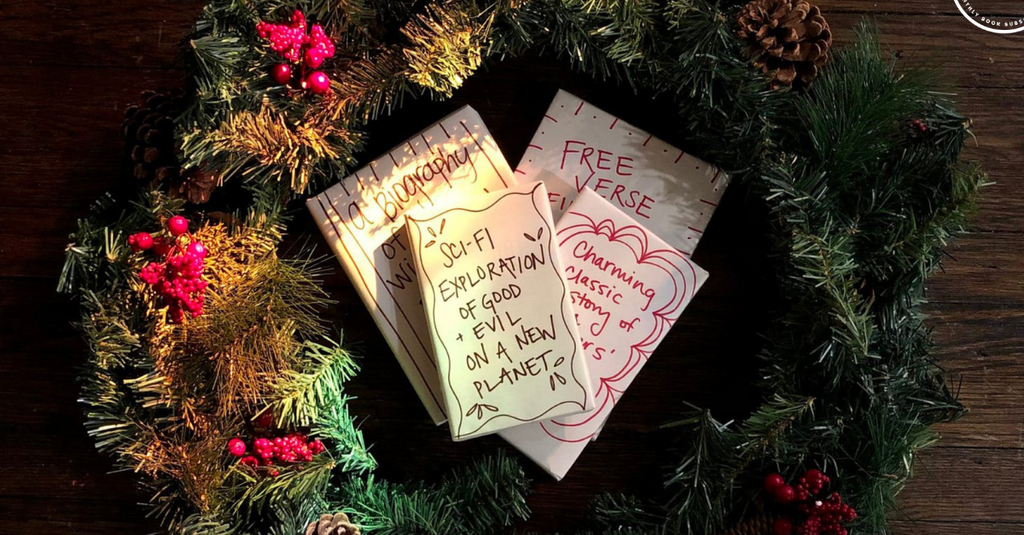 a Biography
of
Wi
FREE
VERSE
FI
SCI-FI
EXPLORATION
OF GOOD
+ EVIL
ON A NEW
PLANET
Charming
Classic
story of
ers'
THLY BOOK SUBS